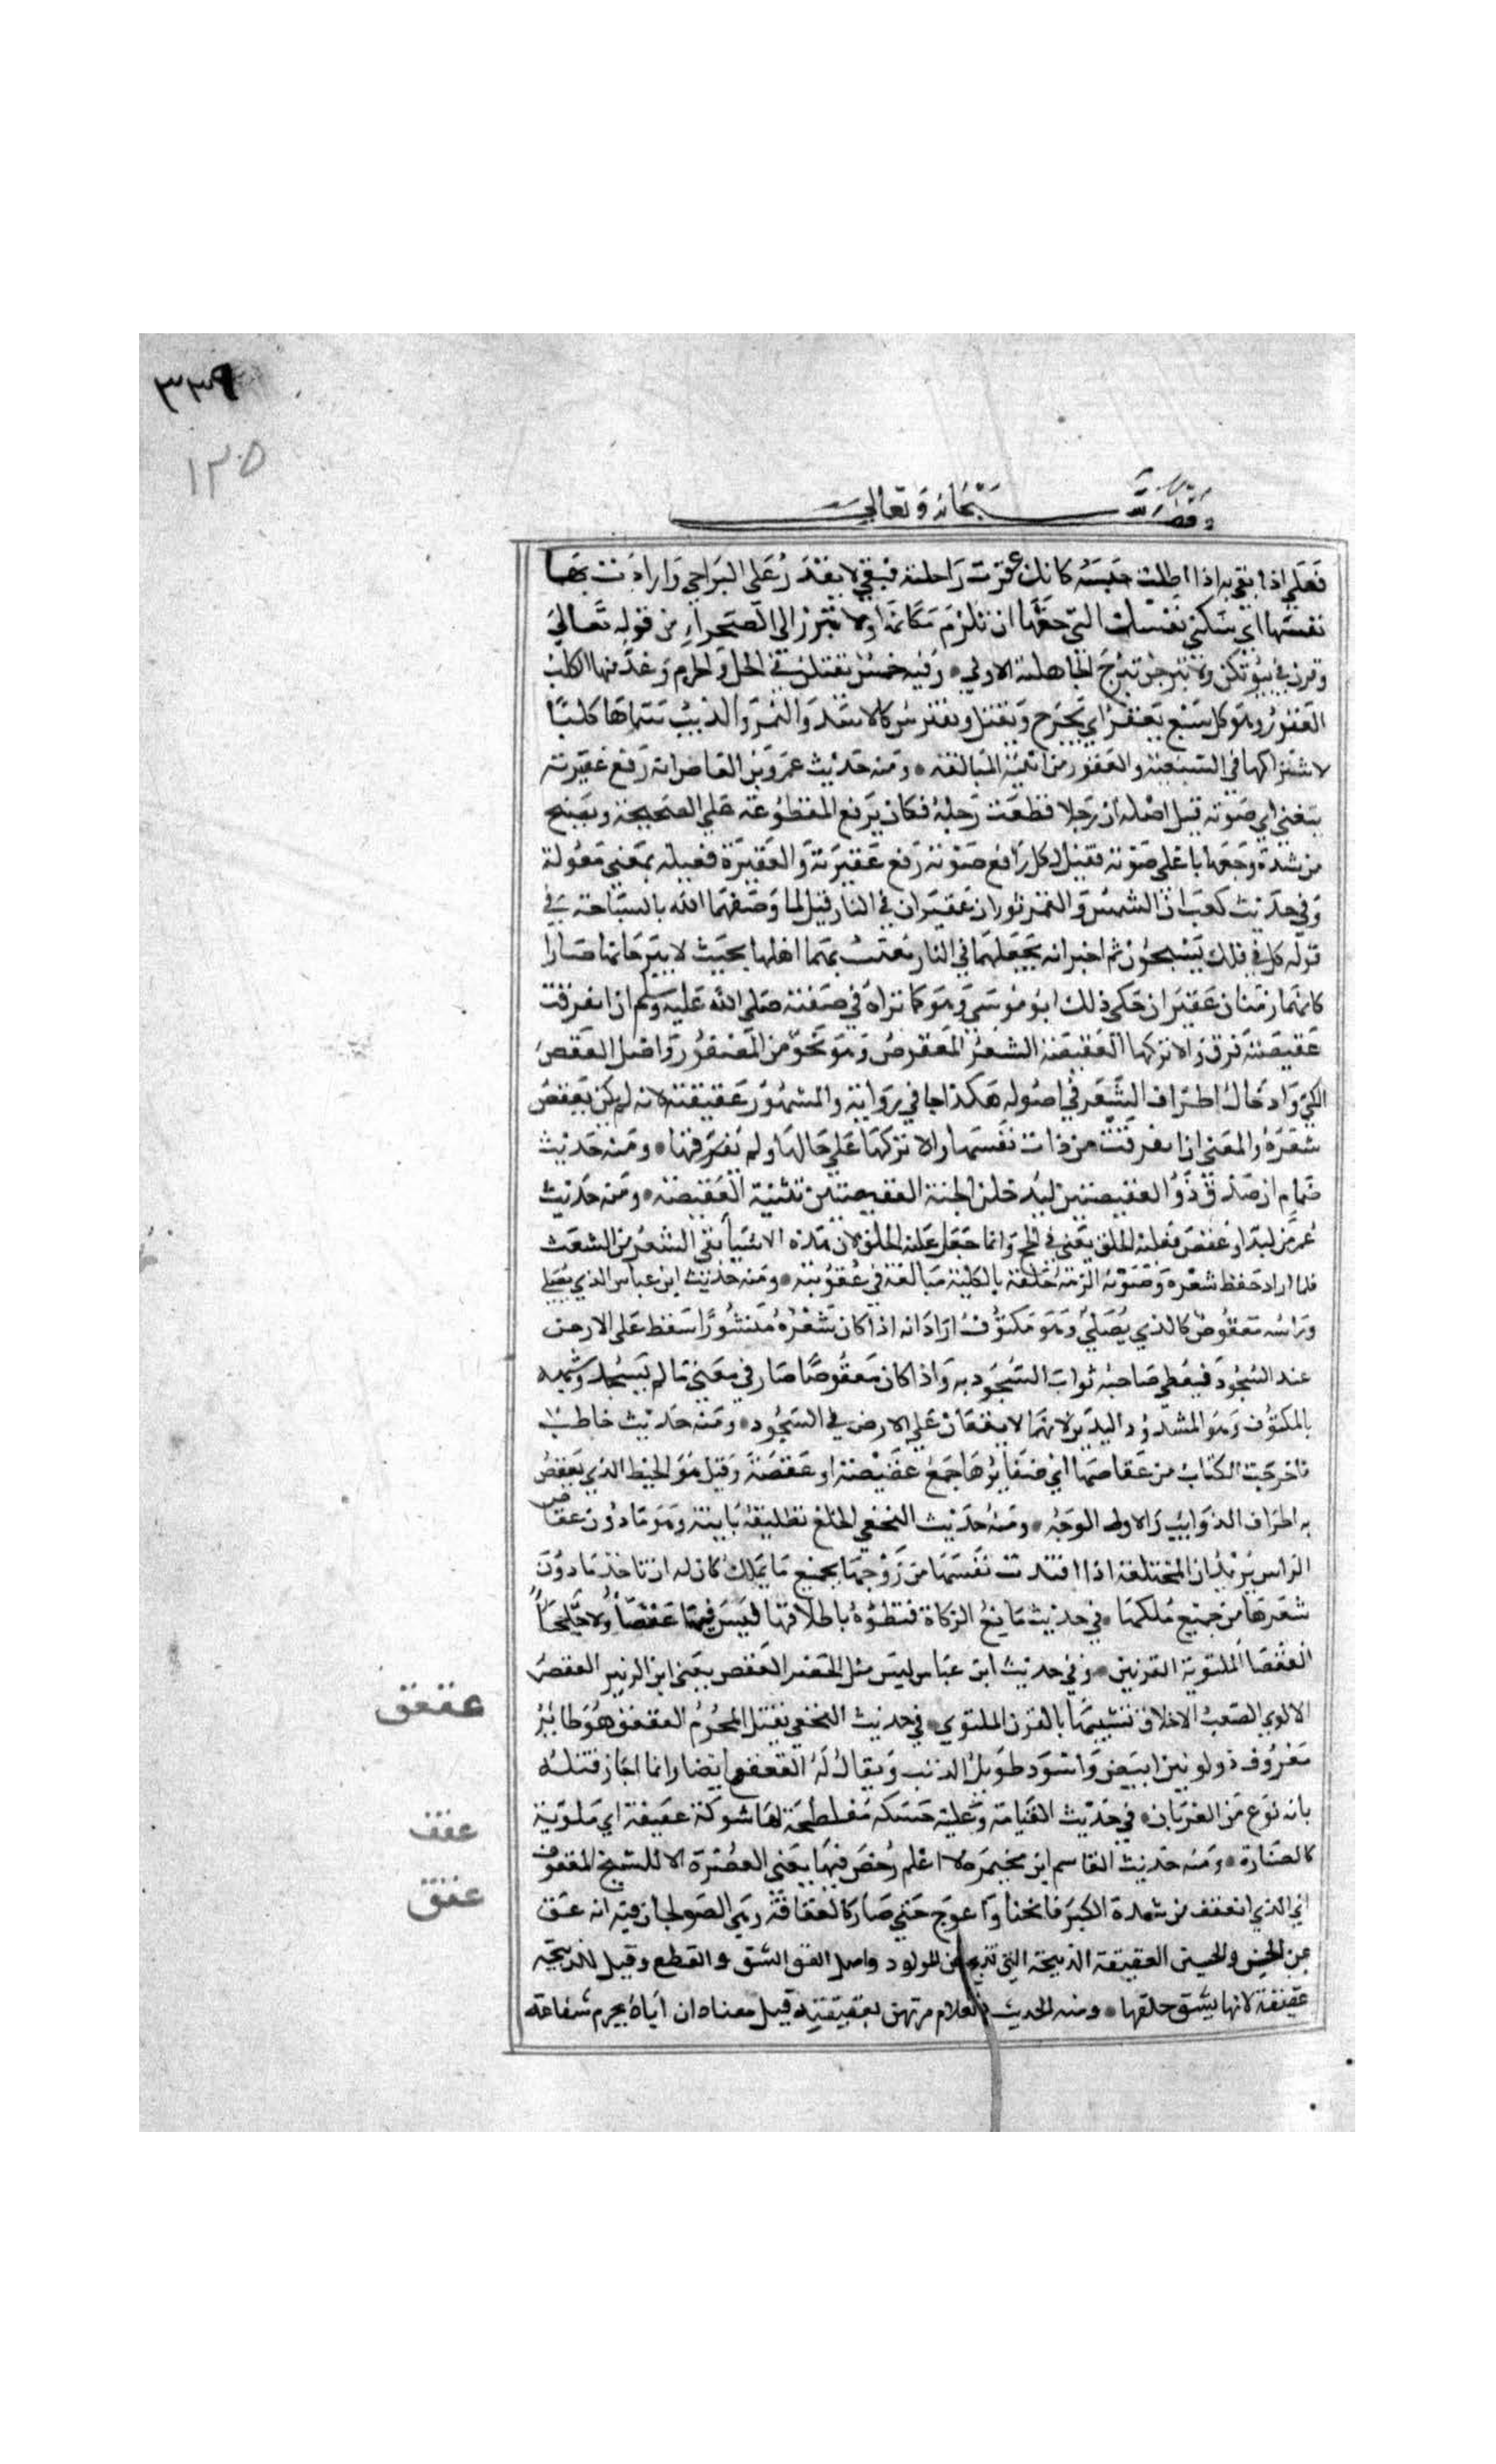 ٣٣٩
١٣٥
وقف لله سبحانه وتعالى
فعلي اذا بقي به اذا اطلت حبسه كانك عقرت راحلته فبقي لا يقدر على البراح وارادت بها
نفسها اي سكني نفسك التي حقها ان تلزم مكانها ولا تبرز الى الصحراء من قوله تعالى
وقرن في بيوتكن ولا تبرجن تبرج الجاهلية الاولى وفيه خمس يقتلن في الحل والحرم وعد منها الكلب
العقور وهو كل سبع يعقر اي يجرح ويقتل ويفترس كالاسد والنمر والذيب سماها كلبا
لاشتراكها في السبعية والعقور من ابنية المبالغة ومنه حديث عمرو بن العاص انه رفع عقيرته
يتغنى اي صوته قيل اصله ان رجلا قطعت رجله فكان يرفع المقطوعة على الصحيحة ويصيح
من شدة وجعها باعلى صوته فقيل لكل رافع صوته رفع عقيرته والعقيرة فعيلة بمعنى مفعولة
وفي حديث كعب ان الشمس والقمر ثوران عقيران في النار قيل لما وصفهما الله بالسباحة في
قوله كل في فلك يسبحون ثم اخبر انه يجعلهما في النار يعذب بهما اهلها بحيث لا يبرحانها صارا
كانهما زمنان عقيران حكى ذلك ابو موسى وهو كما تراه في صفته صلى الله عليه وسلم ان انفرقت
عقيصته فرق والا تركها العقيصة الشعر المعقوص وهو نحو من المضفور واصل العقص
اللي وادخال اطراف الشعر في اصوله هكذا جا في رواية والمشهور عقيقته لانه لم يكن يعقص
شعره والمعنى ان انفرقت من ذات نفسها والا تركها على حالها ولم يفرقها ومنه حديث
ضمام ان صدق ذو العقيصتين ليدخلن الجنة العقيصتين تثنية العقيصة ومنه حديث
عمر من لبد او عقص فعليه الحلق يعني في الحج وانما جعل عليه الحلق لان هذه الاشيا تقي الشعر من الشعث
فلما اراد حفظ شعره وصونه الزمه حلقه بالكلية مبالغة في عقوبته ومنه حديث ابن عباس الذي يصلي
وراسه معقوص كالذي يصلي وهو مكتوف اراد انه اذا كان شعره منشورا سقط على الارض
عند السجود فيعطي صاحبه ثواب السجود به واذا كان معقوصا صار في معنى ما لم يسجد وشبهه
بالمكتوف وهو المشدود اليدين لانهما لا يقعان على الارض في السجود ومنه حديث حاطب
فاخرجت الكتاب من عقاصها اي ضفايرها جمع عقيصة او عقصة وقيل هو الخيط الذي يعقص
به اطراف الذوايب والاول الوجه ومنه حديث النخعي الخلع تطليقة باينة وهو ما دون عقاص
الراس يريد ان المختلعة اذا افتدت نفسها من زوجها بجميع ما يملك كان له ان ياخذ ما دون
شعرها من جميع ملكها في حديث مانع الزكاة فتطؤه باظلافها ليس فيها عقصا ولا جلحا
العقصا الملتوية القرنين وفي حديث ابن عباس ليس مثل الحصر العقص يعني ابن الزبير العقص
الالوي الصعب الاخلاق تشبيها بالقرن الملتوي في حديث النخعي يقتل المحرم العقعق هو طائر
معروف ذو لونين ابيض واسود طويل الذنب ويقال له القعقع ايضا وانما اجاز قتله
بانه نوع من الغربان في حديث القيامة وعليه حسكة مفلطحة لها شوكة عقيفة اي ملوية
كالصنارة ومنه حديث القاسم ابن مخيمرة لا اعلم رخص فيها يعني العصرة الا للشيخ المعقوف
اي الذي انعقف من شدة الكبر فانحنا واعوج حتى صار كالعقافة وهي الصولجان فيه انه عق
عن الحسن والحسين العقيقة الذبيحة التي تذبح عن المولود واصل العق الشق والقطع وقيل للذبيحة
عقيقة لانها يشق حلقها ومنه الحديث الغلام مرتهن بعقيقته قيل معناه ان اباه يحرم شفاعته
عقعق
عقف
عقق